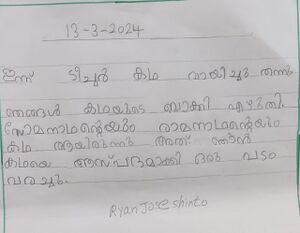 13-3-2024
ഇന്ന് ടീച്ചർ കഥ വായിച്ചു തന്നു
ഞങ്ങൾ കഥയുടെ ബാക്കി എഴുതി.
സോമനാഥന്റെയും രാമനാഥന്റെയും
കഥ ആയിരുന്നു അത് ഞാൻ
കഥയെ ആസ്പദമാക്കി ഒരു പടം
വരച്ചു.
Ryan Jose shinto